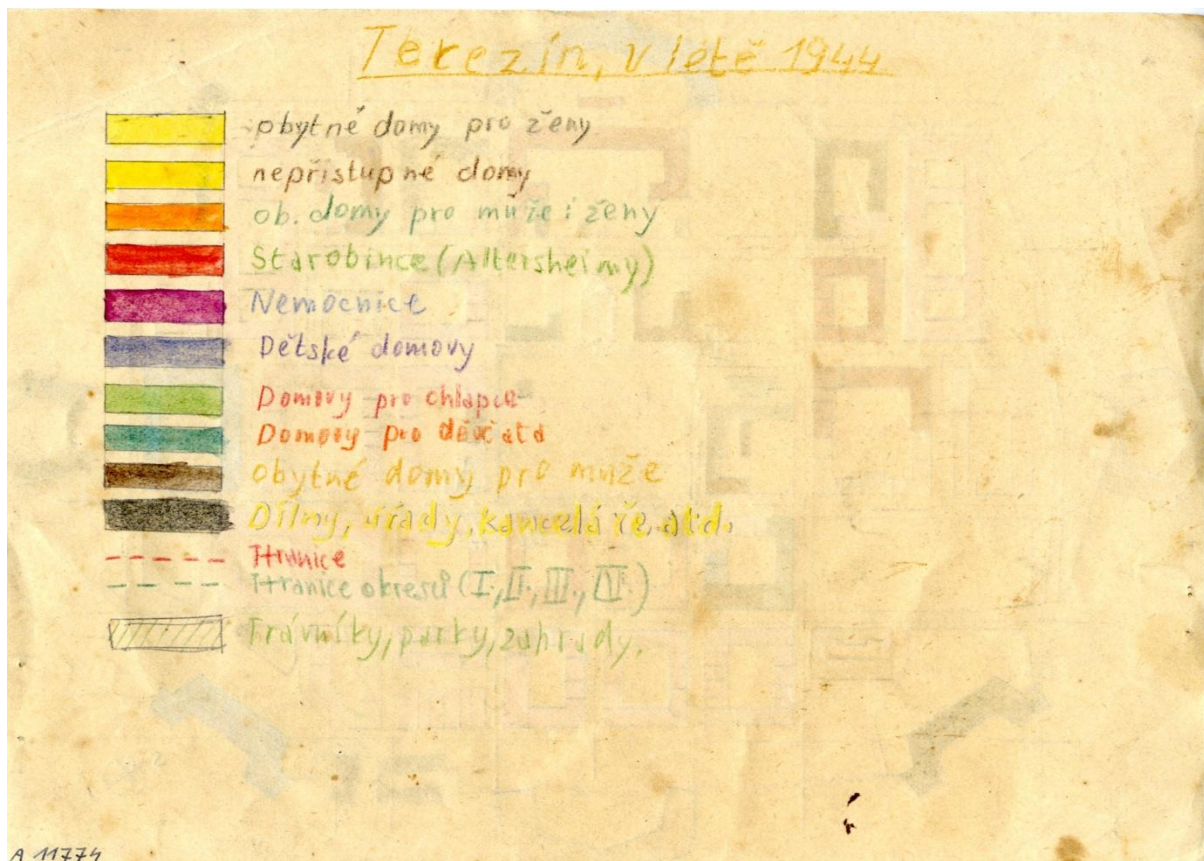 Terezín, v létě 1944
obytné domy pro ženy
nepřístupné domy
ob. domy pro muže i ženy
Starobince (Altersheimy)
Nemocnice
Dětské domovy
Domovy pro chlapce
Domovy pro děvčata
Obytné domy pro muže
Dílny, úřady, kanceláře, atd.
Hranice
Hranice okresů (I., II., III., IV.)
Trávníky, parky, zahrady.
A 11774